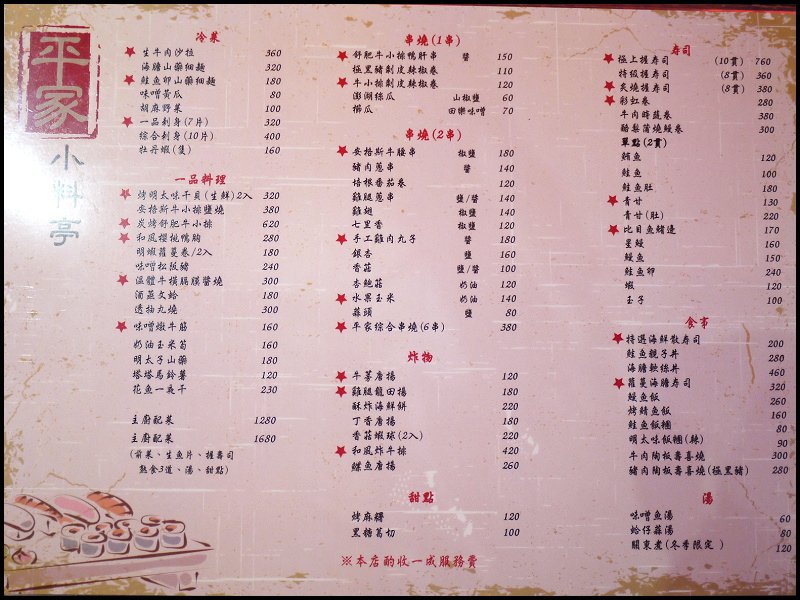 平家
小料亭
冷菜
生牛肉沙拉 360
海膽山藥細麵 320
鮭魚卵山藥細麵 180
味噌黃瓜 80
胡麻野菜 100
一品刺身(7片) 320
綜合刺身(10片) 400
牡丹蝦(隻) 160
一品料理
烤明太味干貝(生鮮)2入 320
安格斯牛小排鹽燒 380
炭烤舒肥牛小排 620
和風櫻桃鴨胸 280
明蝦蘿蔓卷/2入 180
味噌松阪豬 240
溫體牛橫膈膜醬燒 300
酒蒸文蛤 180
透抽丸燒 300
味噌燉牛筋 160
奶油玉米筍 160
明太子山藥 180
塔塔馬鈴薯 120
花魚一夜干 230
主廚配菜 1280
主廚配菜 1680
(前菜、生魚片、握壽司
熟食3道、湯、甜點)
串燒(1串)
舒肥牛小排鴨肝串 醬 150
極黑豬剝皮辣椒卷 110
牛小排剝皮辣椒卷 120
澎湖絲瓜 山椒鹽 60
櫛瓜 田樂味噌 70
串燒(2串)
安格斯牛腰串 椒鹽 180
豬肉蔥串 醬 140
培根番茄卷 120
雞腿蔥串 鹽/醬 140
雞翅 椒鹽 140
七里香 椒鹽 120
手工雞肉丸子 醬 180
銀杏 鹽 160
香菇 鹽/醬 100
杏鮑菇 奶油 120
水果玉米 奶油 140
蒜頭 鹽 80
平家綜合串燒(6串) 380
炸物
牛蒡唐揚 120
雞腿龍田揚 180
酥炸海鮮餅 220
丁香唐揚 180
香菇蝦球(2入) 220
和風炸牛排 420
鰈魚唐揚 260
甜點
烤麻糬 120
黑糖葛切 100
※本店酌收一成服務費
壽司
極上握壽司 (10貫) 760
特級握壽司 (8貫) 360
炙燒握壽司 (8貫) 380
彩虹卷 280
牛肉時蔬卷 180
酪梨蒲燒鰻卷 300
單點(2貫)
鮪魚 120
鮭魚 100
鮭魚肚 180
青甘 130
青甘(肚) 220
比目魚鰭邊 170
星鰻 160
鰻魚 150
鮭魚卵 240
蝦 120
玉子 100
食事
特選海鮮散壽司 200
鮭魚親子丼 280
海膽軟絲丼 460
蘿蔓海膽壽司 320
鰻魚飯 260
烤鯖魚飯 160
鮭魚飯糰 80
明太味飯糰(辣) 90
牛肉陶板壽喜燒 300
豬肉陶板壽喜燒(極黑豬) 280
湯
味噌魚湯 60
蛤仔蒜湯 80
關東煮(冬季限定) 120